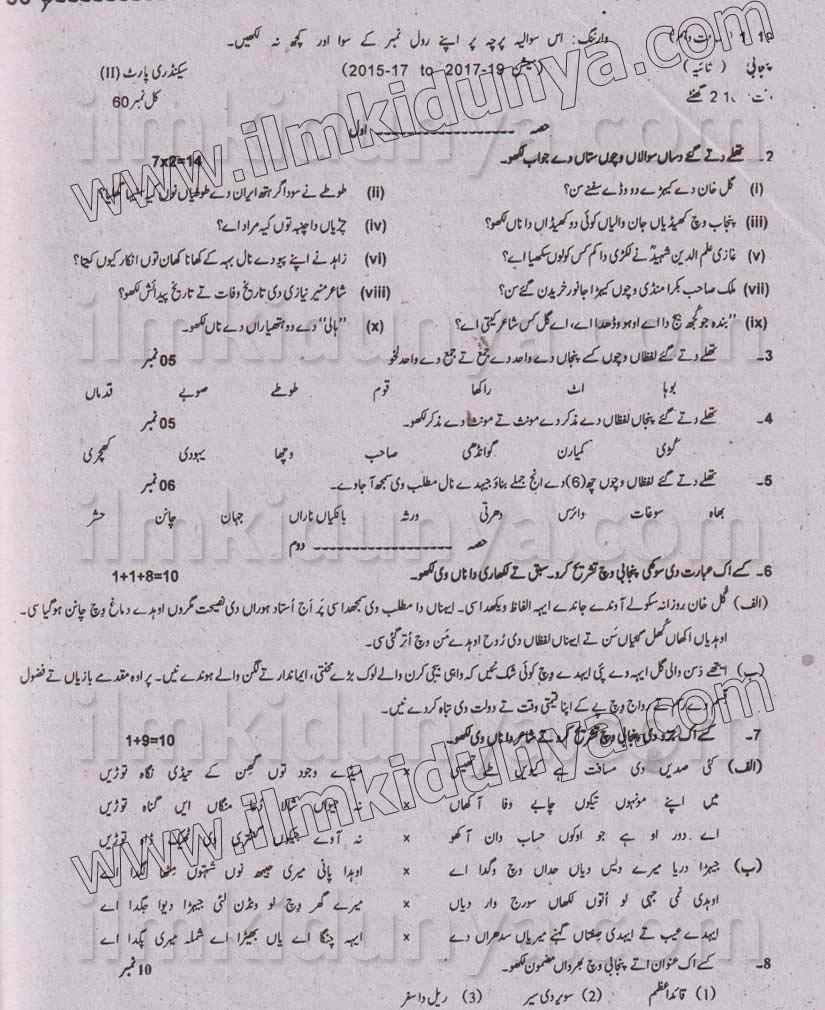 وارننگ: اس سوالیہ پرچہ پر اپنے رول نمبر کے سوا اور کچھ نہ لکھیں۔
پنجابی (ثانیہ) (سیشن 19-2017 to 17-2015) سیکنڈری پارٹ (II)
2 گھنٹے کل نمبر 60
حصہ اول
2۔ تھلے دتے گئے دساں سوالاں وچوں ستاں دے جواب لکھو۔ 7x2=14
(i) گل خان دے کیہڑے دو وڈے سفنے سن؟ (ii) طوطے نے سوداگر ہتھ ایران دے طوطیاں نوں
(iii) پنجاب وچ کھیڈیاں جان والیاں کوئی دو کھیڈاں دا ناں لکھو؟ (iv) چڑیاں دا چنبہ توں کیہ مراد اے؟
(v) غازی علم الدین شہیدؒ نے لکڑی دا کم کس کولوں سکھیا اے؟ (vi) زاہد نے اپنے پیو دے نال بہہ کے کھانا کھان توں انکار کیوں کیتا؟
(vii) ملک صاحب بکرا منڈی وچوں کیہڑا جانور خریدن گئے سن؟ (viii) شاعر منیر نیازی دی تاریخ وفات تے تاریخ پیدائش لکھو؟
(ix) "بندہ جو کجھ بیج دا اے اوہو وڈھدا اے، اے گل کس شاعر کیتی اے؟ (x) "ہالی" دے دو ہتھیاراں دے ناں لکھو۔
3۔ تھلے دتے گئے لفظاں وچوں کسے پنجاں دے واحد دے جمع تے جمع دے واحد لخو 05 نمبر
بوہا اٹ راکھا قوم طوطے صوبے قدماں
4۔ تھلے دتے گئے پنجاں لفظاں دے مذکر دے مونث تے مونث دے مذکر لکھو۔ 05 نمبر
کڑی کمیارن گوانڈھی صاحب وچھا یہودی کھچری
5۔ تھلے دتے گئے لفظاں وچوں چھ (6) دے انج جملے بناؤ جیہدے نال مطلب وی سمجھ آ جاوے۔ 06 نمبر
بھاہ سوغات وائرس دھرتی ورثہ بانکیاں ناراں جہان چانن حشر
حصہ دوم
6۔ کسے اک عبارت دی سوکھی پنجابی وچ تشریح کرو۔ سبق تے لکھاری دا ناں وی لکھو۔ 1+1+8=10
(الف) گل خان روزانہ سکولے آوندے جاندے ایہہ الفاظ ویکھدا سی۔ ایہناں دا مطلب وی سمجھدا سی پر اج استاد ہوراں دی نصیحت مگروں اوہدے دماغ وچ چانن ہو گیا سی۔
اوہدیاں اکھاں کھل گئیاں سن تے ایہناں لفظاں دی روح اوہدے من وچ اتر گئی سی۔
(ب) ایتھے دسن والی گل ایہہ وے پئی ایہدے وچ کوئی شک نئیں کہ واہی بیجی کرن والے لوک بڑے محنتی، ایماندار تے لگن والے ہوندے نیں۔ پر اوہ مقدمے بازیاں تے فضول
قسم دے رسم تے رواج وچ پے کے اپنا قیمتی وقت تے دولت وی تباہ کردے نیں۔
7۔ کسے اک جزو دی پنجابی وچ تشریح کرو تے شاعر دا ناں وی لکھو۔ 1+9=10
(الف) کئی صدیں دی مسافت ہے کیویں طے تھیسی × میڈے وجود توں گھن کے تیڈی نگاہ توڑیں
میں اپنے مونہوں تیکوں چاہے وفا آکھاں × نہ جیواں شالا دعا منگاں ایں گناہ توڑیں
اے دور او ہے جو اوکوں حساب دان آکھو × نہ آوے جیکوں گنتری وی
(ب) جیہڑا دریا میرے دیس دیاں حداں وچ وگدا اے × اوہدا پانی میری جیبھ نوں شہتوں مٹھا لگدا اے
اوہدی نمی جہی لو اتوں لکھاں سورج وار دیاں × میرے گھر وچ لو ونڈن لئی جیہڑا دیوا جگدا اے
ایہدے عیب تے ایہدی صفتاں گہنے میریاں سدھراں دے × ایہہ چنگا اے یاں بھیڑا اے شملہ میری پگدا اے
8۔ کسے اک عنوان اتے پنجابی وچ بھرواں مضمون لکھو۔ 10 نمبر
(1) قائداعظم (2) سویر دی سیر (3) ریل دا سفر
www.ilmkidunya.com
ilmkidunya.com
www.ilmkidunya.com
ilmkidunya.com
ilmkidunya.com
www.ilmkidunya.com
ilmkidunya.com
ilmkidunya.com